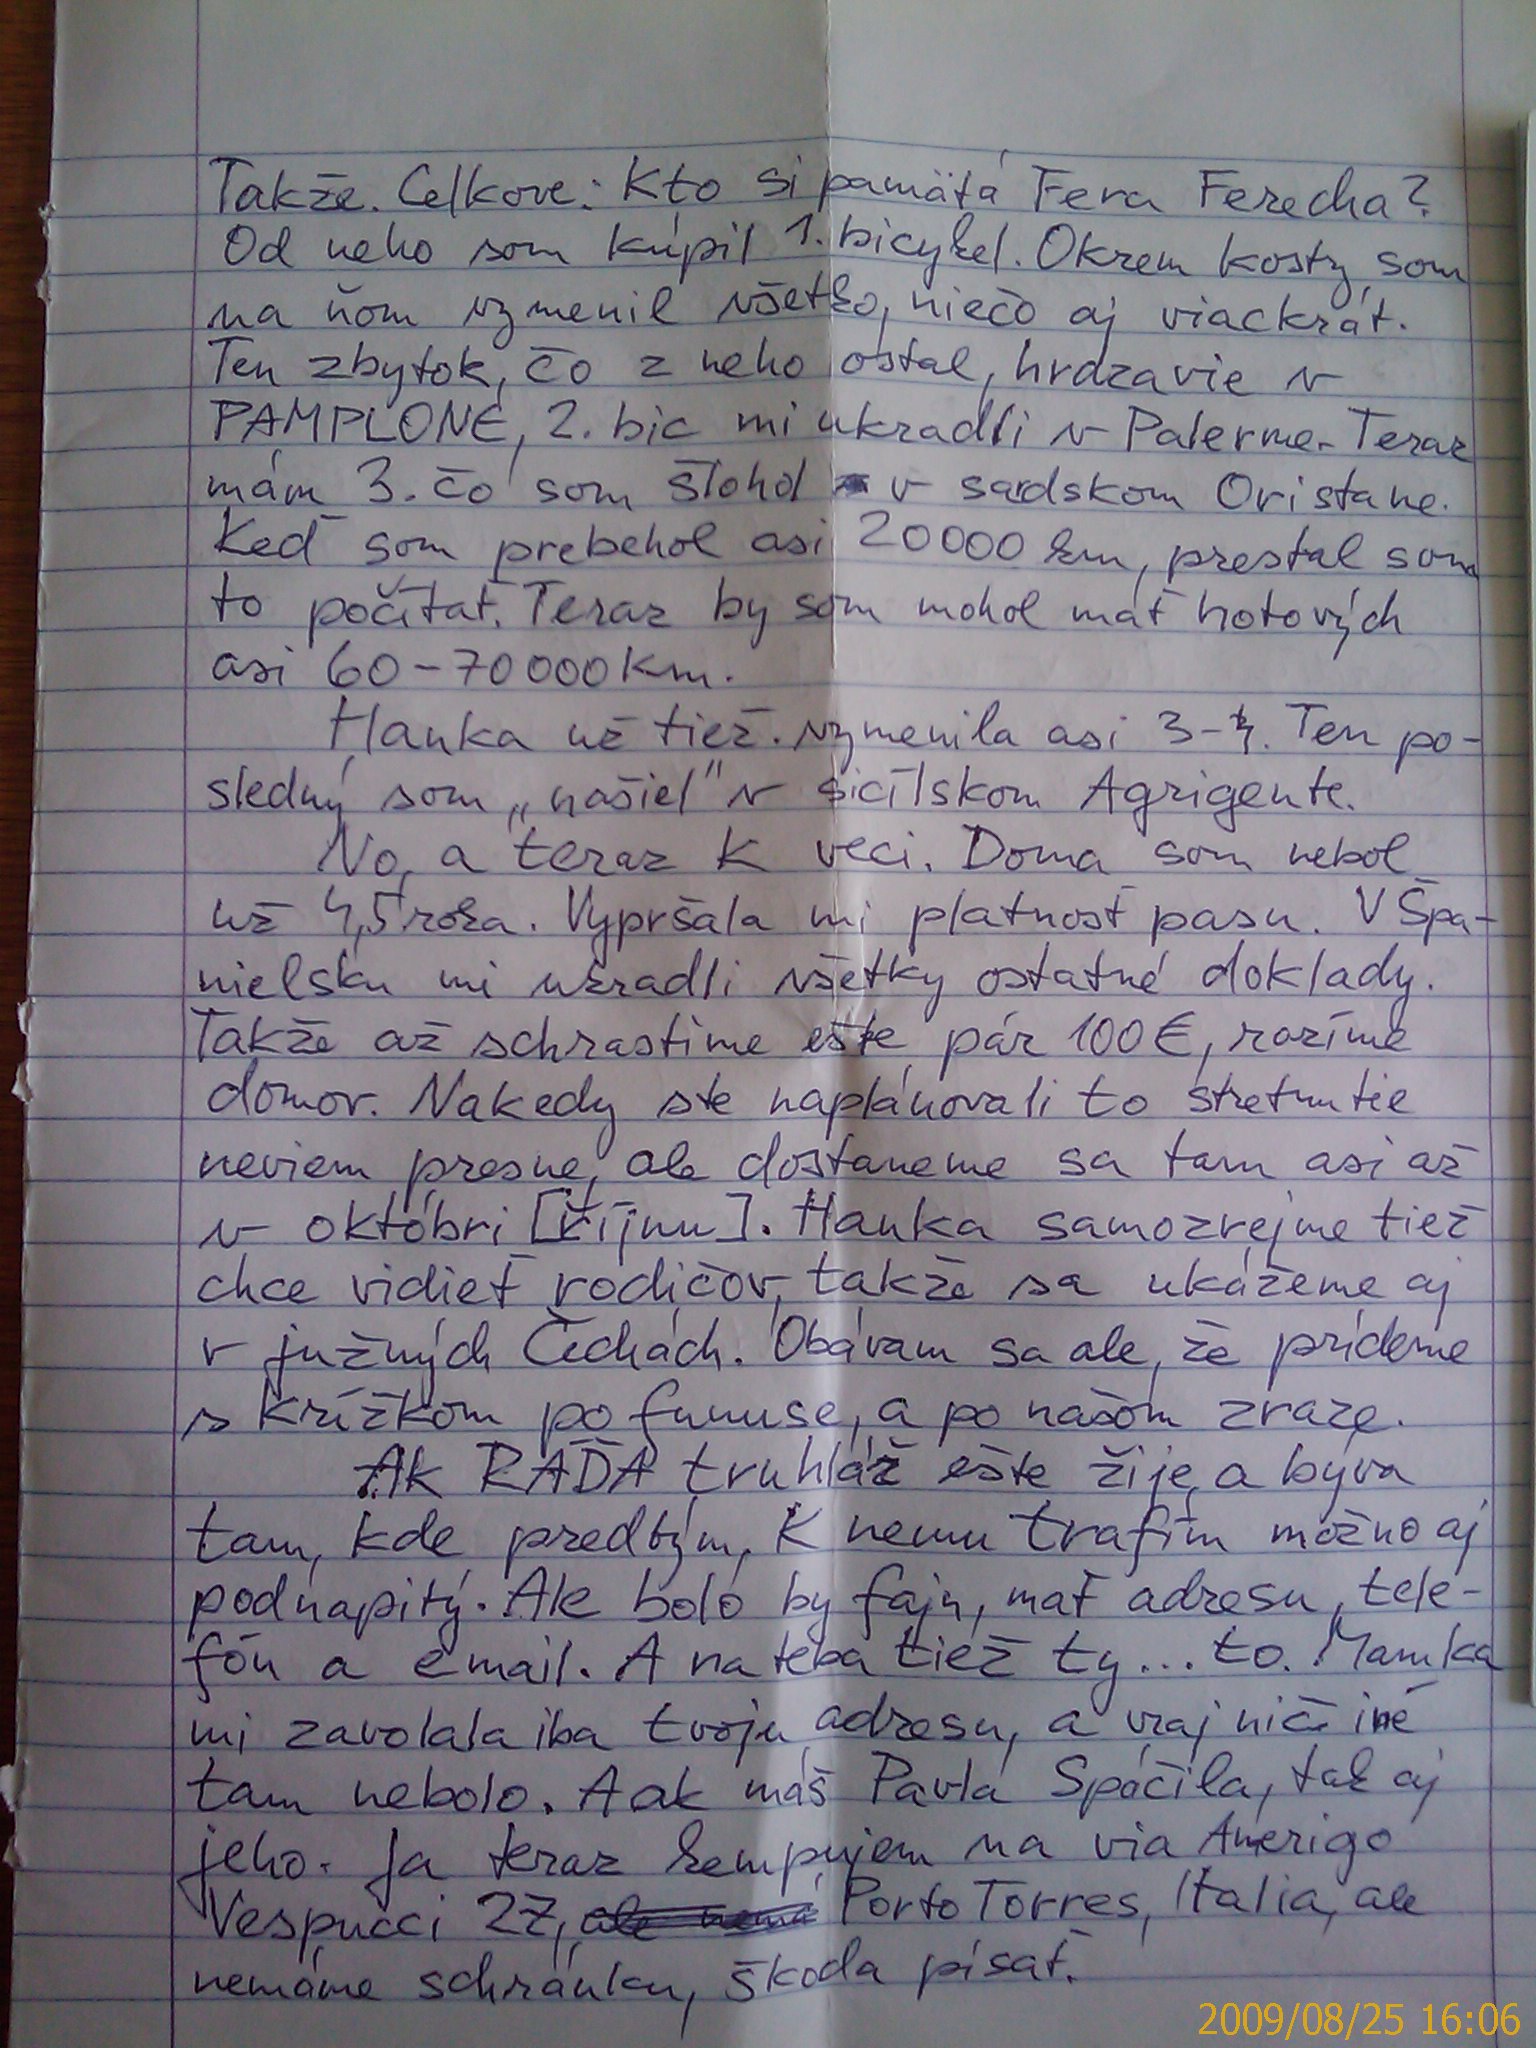 Takže. Celkove: Kto si pamätá Fera Ferecha?
Od neho som kúpil 1. bicykel. Okrem kosty som
na ňom vymenil všetko, niečo aj viackrát.
Ten zbytok, čo z neho ostal, hrdzavie v
PAMPLONE, 2. bic mi ukradli v Palerme. Teraz
mám 3. čo som šlohol v sardskom Oristane.
Keď som prebehol asi 20000 km, prestal som
to počítať. Teraz by som mohol mať hotových
asi 60-70000 km.
Hanka už tiež. vymenila asi 3-4. Ten po-
sledný som „našiel" v sicílskom Agrigente.
No, a teraz k veci. Doma som nebol
už 4,5 roka. Vypršala mi platnosť pasu. V Špa-
nielsku mi ukradli všetky ostatné doklady.
Takže až schrastíme ešte pár 100€, razíme
domov. Nakedy ste naplánovali to stretnutie
neviem presne, ale dostaneme sa tam asi až
v októbri [říjnu]. Hanka samozrejme tiež
chce vidieť rodičov, takže sa ukážeme aj
v južných Čechách. Obávam sa ale, že prídeme
s krížkom po funuse, a po našom zraze.
Ak RAĎA truhlář ešte žije, a býva
tam, kde predtým, K nemu trafím možno aj
podnapitý. Ale bolo by fajn, mať adresu, tele-
fón a email. A na teba tiež ty... to. Mamka
mi zavolala iba tvoju adresu, a vraj nič iné
tam nebolo. A ak máš Pavla Spáčila, tak aj
jeho. Ja teraz kempujem na via Amerigo
Vespucci 27, Porto Torres, Italia, ale
nemáme schránku, škoda písať.
2009/08/25 16:06